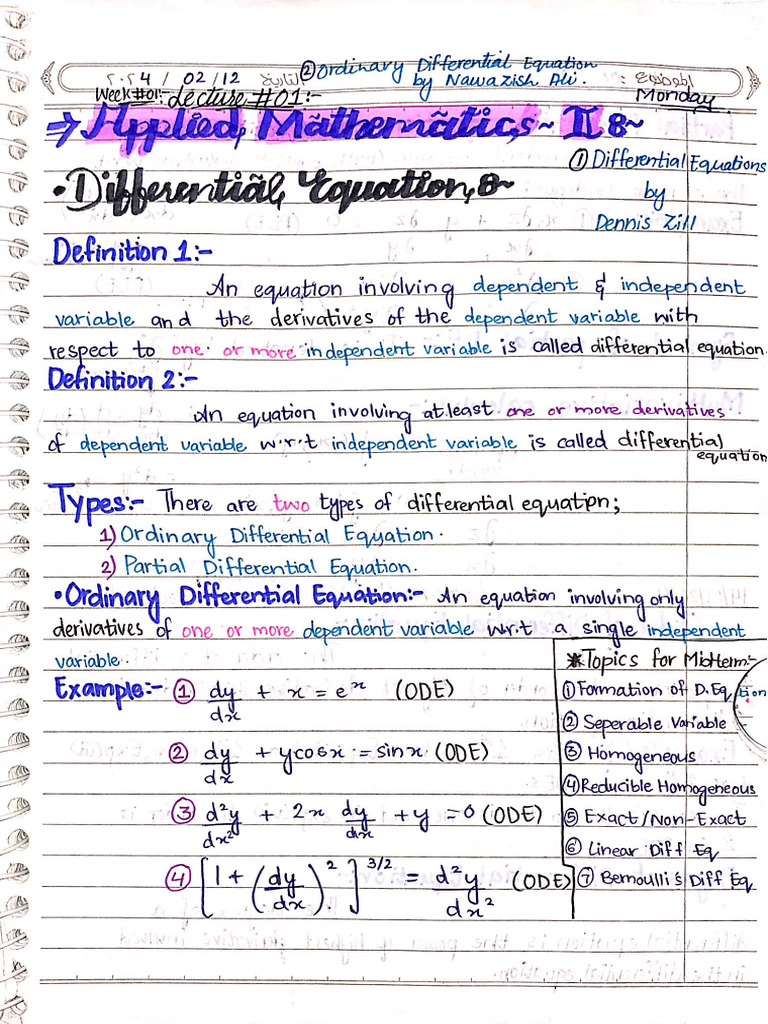 ٢٠٢4 / 02 / 12 التاريخ ② Ordinary Differential Equation
by Nawazish Ali. الموضوع :
Week#01:- Lecture#01:- Monday
⇒ Applied Mathematics ~ II 8~
① Differential Equations
• Differential Equation 8~ by
Dennis Zill
Definition 1:-
An equation involving dependent & independent
variable and the derivatives of the dependent variable with
respect to one or more independent variable is called differential equation.
Definition 2:-
An equation involving atleast one or more derivatives
of dependent variable w.r.t independent variable is called differential
equation
Types:- There are two types of differential equation;
1) Ordinary Differential Equation.
2) Partial Differential Equation.
• Ordinary Differential Equation:- An equation involving only
derivatives of one or more dependent variable w.r.t a single independent
variable.
Example:- ① dy/dx + x = e^x (ODE)
② dy/dx + ycosx = sinx (ODE)
③ d²y/dx² + 2x dy/dx + y = 0 (ODE)
④ [1 + (dy/dx)²]^3/2 = d²y/dx² (ODE)
* Topics for Midterm:-
① Formation of D.Eq tion
② Seperable Variable
③ Homogeneous
④ Reducible Homogeneous
⑤ Exact/Non-Exact
⑥ Linear Diff Eq
⑦ Bernoulli's Diff Eq